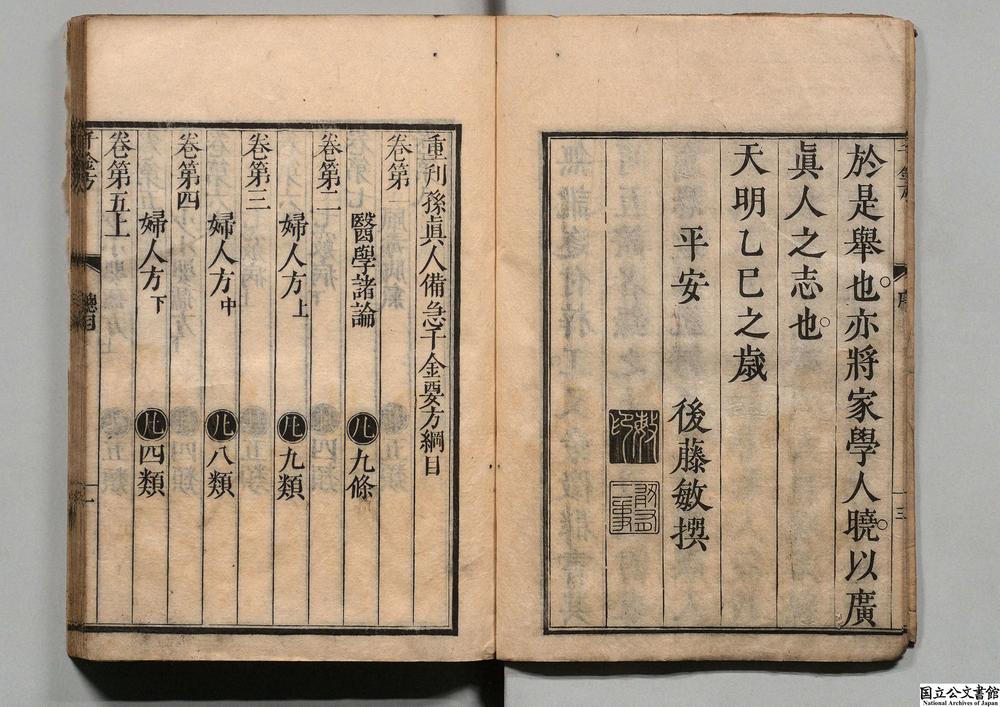 於是舉也。亦將家學人曉。以廣
眞人之志也。
天明乙巳之歳
平安 後藤敏撰
重刋孫眞人備急千金要方綱目
卷第一
醫學諸論 凡九條
卷第二
婦人方上 凡九類
卷第三
婦人方中 凡八類
卷第四
婦人方下 凡四類
卷第五上
千金方 總目 一
国立公文書館
National Archives of Japan